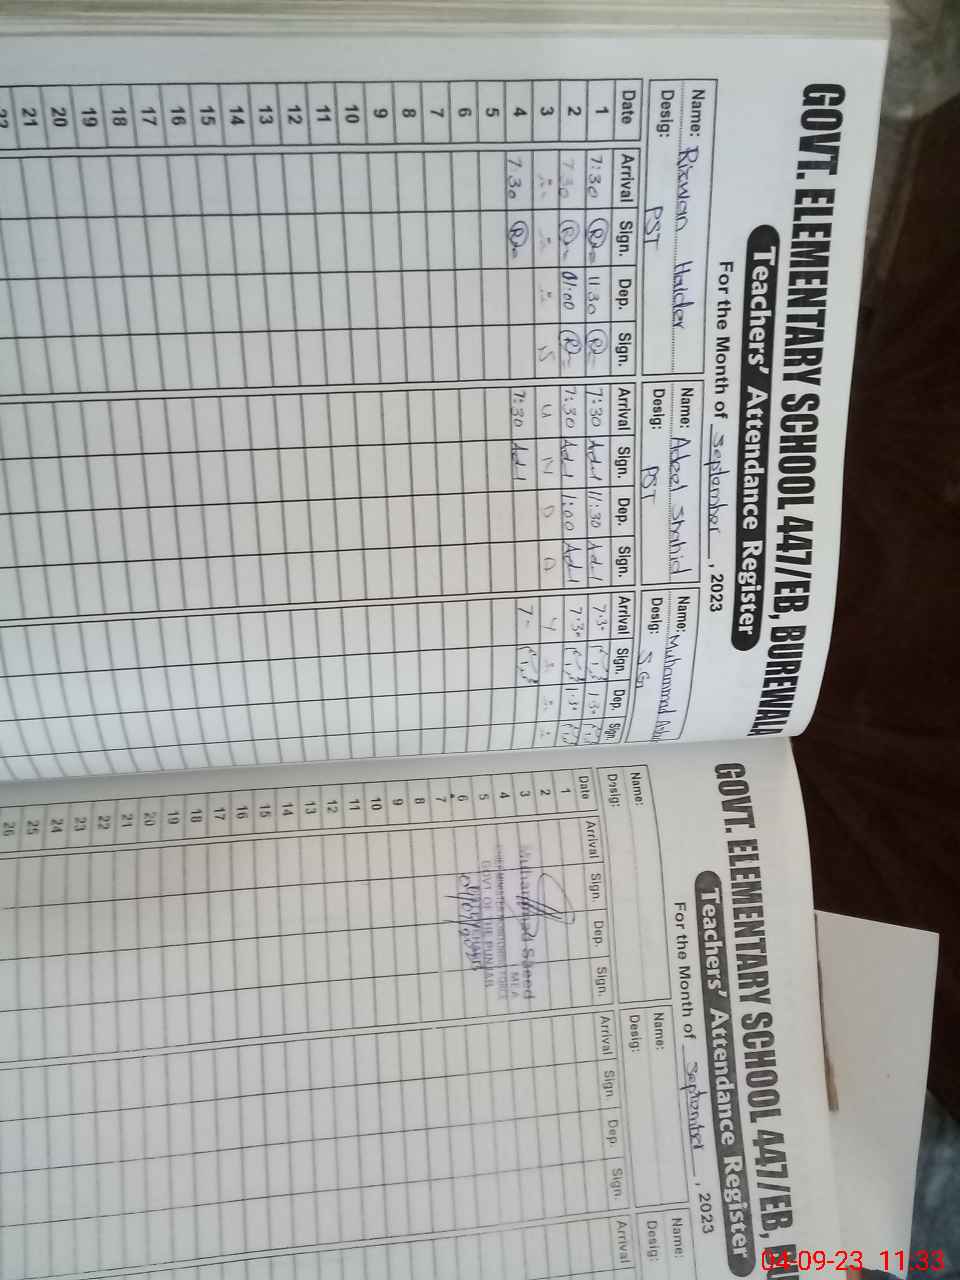 GOVT. ELEMENTARY SCHOOL 447/EB, BUREWALA
Teachers' Attendance Register
For the Month of September, 2023
Name: Rizwan Haider Name: Adeel Shahid Name: Muhammad
Desig: PST Desig: PST Desig: S.G
Date Arrival Sign. Dep. Sign. Arrival Sign. Dep. Sign. Arrival Sign. Dep. Sign.
1 7:30 11:30 7:30 Adl 11:30 Adl 7:30 1:30
2 7:30 01:00 7:30 Adl 1:00 Adl 7:30 1:30
3 S U N D A Y
4 7:30 7:30 Adl 7
5
6
7
8
9
10
11
12
13
14
15
16
17
18
19
20
21
22
GOVT. ELEMENTARY SCHOOL 447/EB,
Teachers' Attendance Register
For the Month of September, 2023
Name: Name: Name:
Desig: Desig: Desig:
Date Arrival Sign. Dep. Sign. Arrival Sign. Dep. Sign. Arrival
1
2
3
4
5
6
7
8
9
10
11
12
13
14
15
16
17
18
19
20
21
22
23
24
25
26
Muhammad Saeed
MEA
CHIEF MINISTER MONITORING FORCE
GOVT. OF THE PUNJAB
04-09-23 11:33